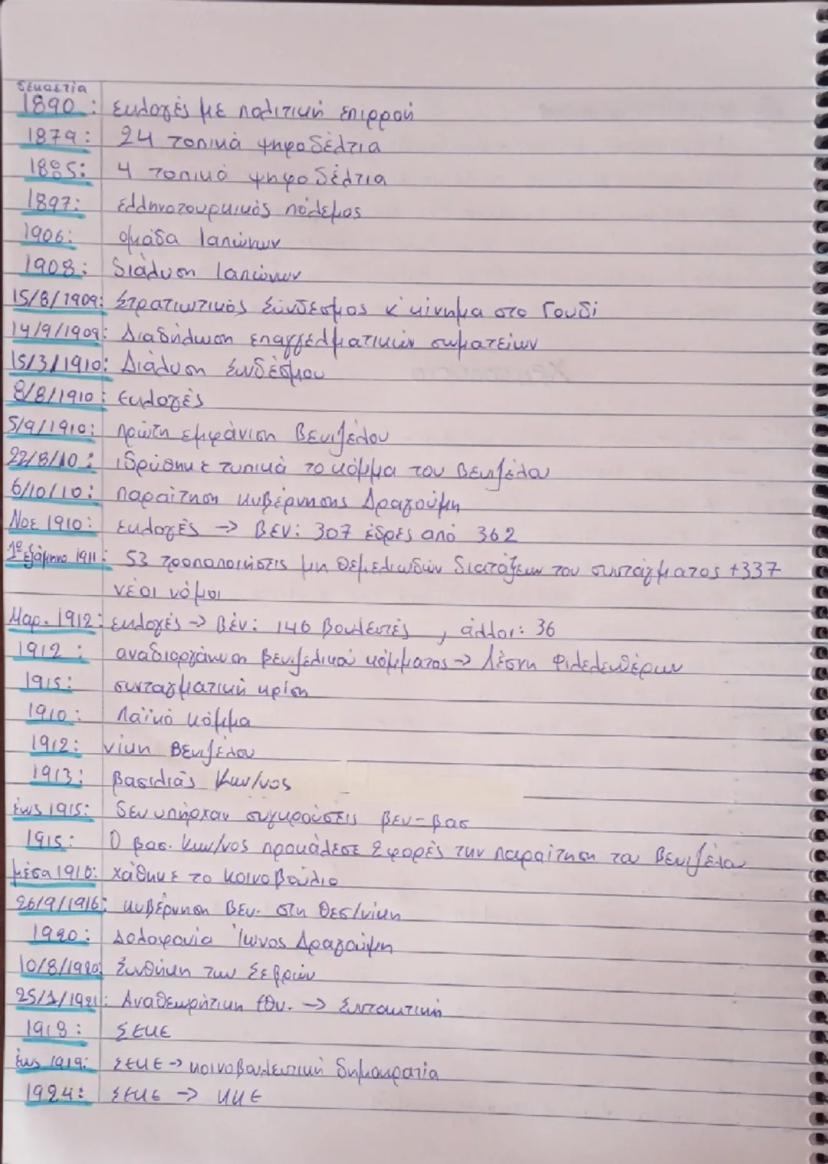 δεκαετία
1890: εκλογές με πολιτική επιρροή
1879: 24 τοπικά ψηφοδέλτια
1885: 4 τοπικά ψηφοδέλτια
1897: ελληνοτουρκικός πόλεμος
1906: ομάδα Ιαπώνων
1908: διάλυση Ιαπώνων
15/8/1909: Στρατιωτικός Σύνδεσμος κ' κίνημα στο Γουδί
14/9/1909: Διαδήλωση επαγγελματικών σωματείων
15/3/1910: Διάλυση Συνδέσμου
8/8/1910: Εκλογές
5/9/1910: πρώτη εμφάνιση Βενιζέλου
22/8/10: ιδρύθηκε τυπικά το κόμμα του Βενιζέλου
6/10/10: παραίτηση κυβέρνησης Δραγούμη
Νοε 1910: εκλογές → Βεν: 307 έδρες από 362
1ο εξάμηνο 1911: 53 τροποποιήσεις μη θεμελιωδών διατάξεων του συντάγματος +337
νέοι νόμοι
Μαρ. 1912: εκλογές → Βέν: 146 βουλευτές, άλλοι: 36
1912: αναδιοργάνωση βενιζελικού κόμματος → Λέσχη Φιλελευθέρων
1915: συνταγματική κρίση
1910: Λαϊκό κόμμα
1912: νίκη Βενιζέλου
1913: βασιλιάς Κων/νος
έως 1915: δεν υπήρχαν συγκρούσεις βεν-βασ
1915: Ο βασ. Κων/νος προκάλεσε 2 φορές την παραίτηση του Βενιζέλου
μέσα 1916: χάθηκε το κοινοβούλιο
26/9/1916: κυβέρνηση Βεν. στη Θεσ/νίκη
1920: Δολοφονία Ίωνος Δραγούμη
10/8/1920: Συνθήκη των Σεβρών
25/1/1921: Αναθεωρήτικη Εθν. → Συντακτική
1918: ΣΕΚΕ
έως 1919: ΣΕΚΕ → κοινοβουλευτική δημοκρατία
1924: ΣΕΚΕ → ΚΚΕ